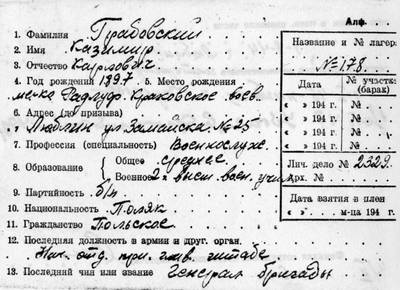 Алф. . . . .
1. Фамилия Грабовский
2. Имя Казимир
3. Отчество Карлович
4. Год рождения 1897 5. Место рождения
Краковское воев.
6. Адрес (до призыва)
Люблин ул. Замойска №25
7. Профессия (специальность) Военнослуж.
8. Образование { Общее среднее
Военное 2 высш. воен. учил.
9. Партийность б/п
10. Национальность Поляк
11. Гражданство Польское
12. Последняя должность в армии и друг. орган.
Нач. отд. при глав. штабе
13. Последний чин или звание Генерал бригады
Название и № лагер.
№178.
Дата № участк. (барак)
« » 194 г. №
« » 194 г. №
« » 194 г. №
« » 194 г. №
Лич. дело № 2329.
Арх. №
Дата взятия в плен
« » м-ца 194 г.